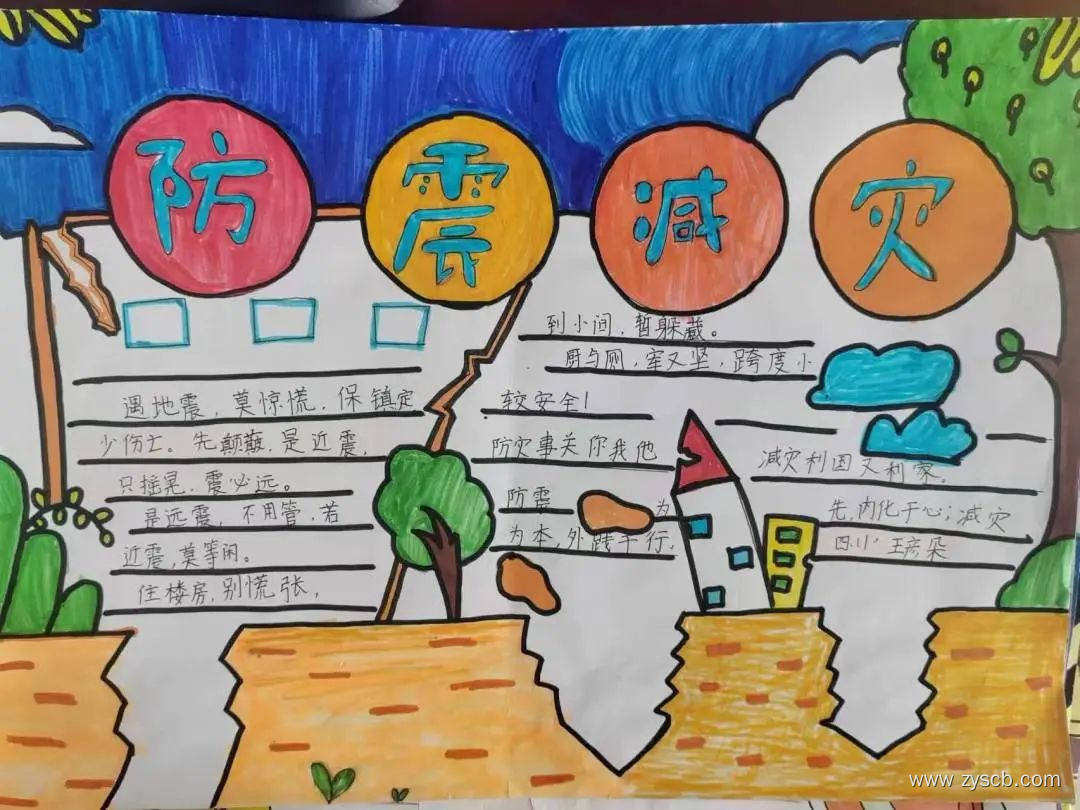 防震减灾
遇地震，莫惊慌，保镇定
少伤亡。先颠簸，是近震，
只摇晃，震必远。
是远震，不用管，若
近震，莫等闲。
住楼房，别慌张，
到小间，暂躲藏。
厨与厕，牢又坚，跨度小
较安全！
防灾事关你我他
减灾利国又利家。
防震 为
先，内化于心；减灾
为本，外践于行，
四小
www.zyscb.com